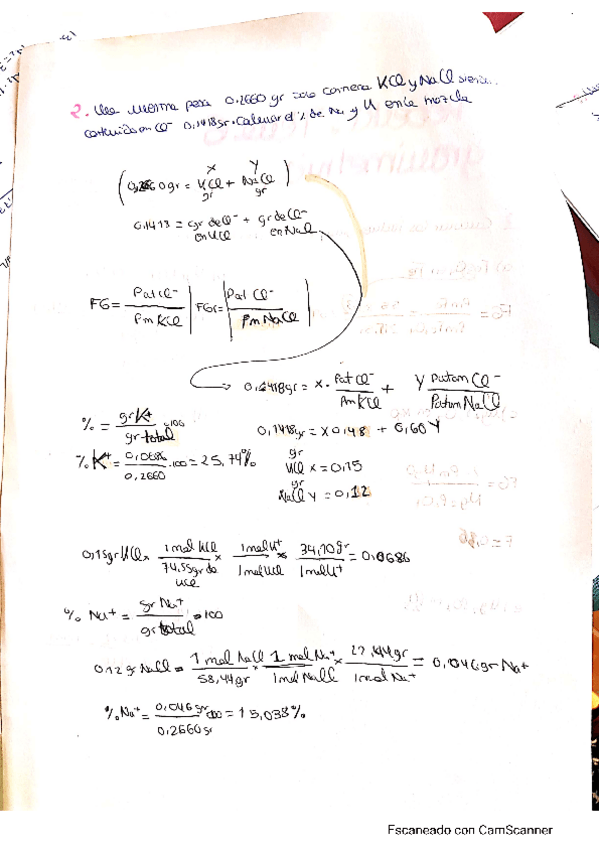 2. Una muestra pesa 0,2660 gr solo contiene KCl y NaCl
contenido en Cl⁻ 0,1418gr. Calcular el % de Na y K en la mezcla
X Y
0,2660 gr = KCl + NaCl
gr gr
0,1413 = gr de Cl⁻ + gr de Cl⁻
en KCl en NaCl
FG = Pat Cl⁻ / Pm KCl | FG = Pat Cl⁻ / Pm NaCl
0,1418gr = X · Pat Cl⁻ / Pm KCl + Y Patom Cl⁻ / Patom NaCl
% = gr K⁺ / gr total ·100
0,1418gr = X 0,48 + 0,60 Y
% K⁺ = 0,0686 / 0,2660 ·100 = 25,74%
gr
KCl X = 0,15
gr
NaCl Y = 0,12
0,15gr KCl × 1 mol KCl / 74,55gr de KCl × 1 mol K⁺ / 1 mol KCl × 34,10gr / 1 mol K⁺ = 0,0686
% Na⁺ = gr Na⁺ / gr total · 100
0,12 gr NaCl = 1 mol NaCl / 58,44gr × 1 mol Na⁺ / 1 mol NaCl × gr / 1 mol Na⁺ = 0,046gr Na⁺
% Na⁺ = 0,046 gr / 0,2660 gr 100 = 15,038 %
Escaneado con CamScanner